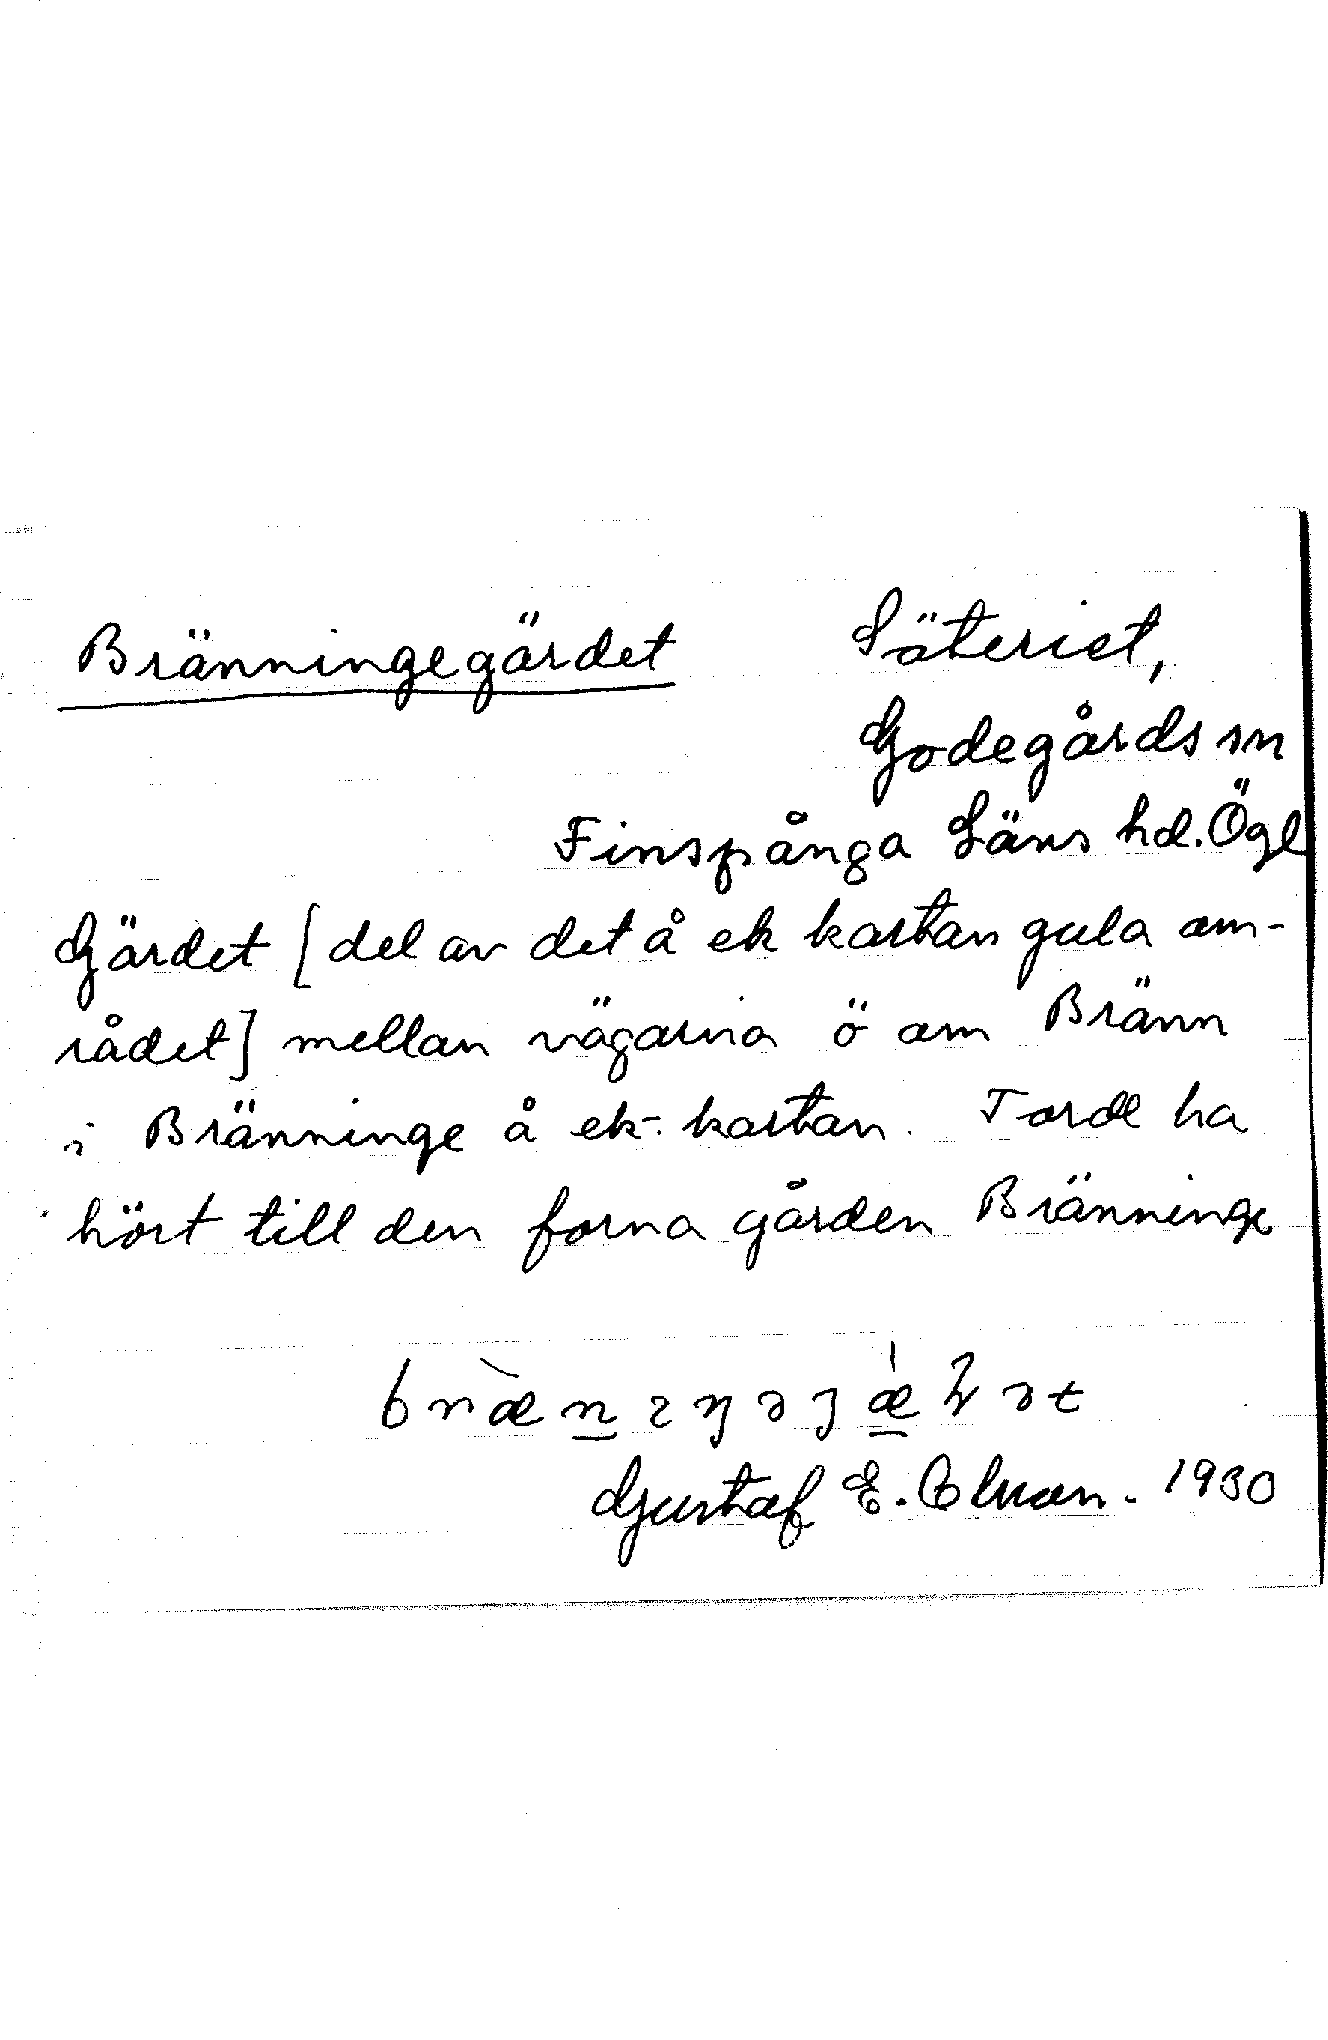 Bränningegärdet Säteriet,
Godegårds sn
Finspånga Läns hd. Ögl
Gärdet [del av det å ek kartan gula om-
rådet] mellan vägarna ö om Bränn
i Bränninge å ek. kartan. Torde ha
hört till den forna gården Bränninge
Gustaf E. 1930